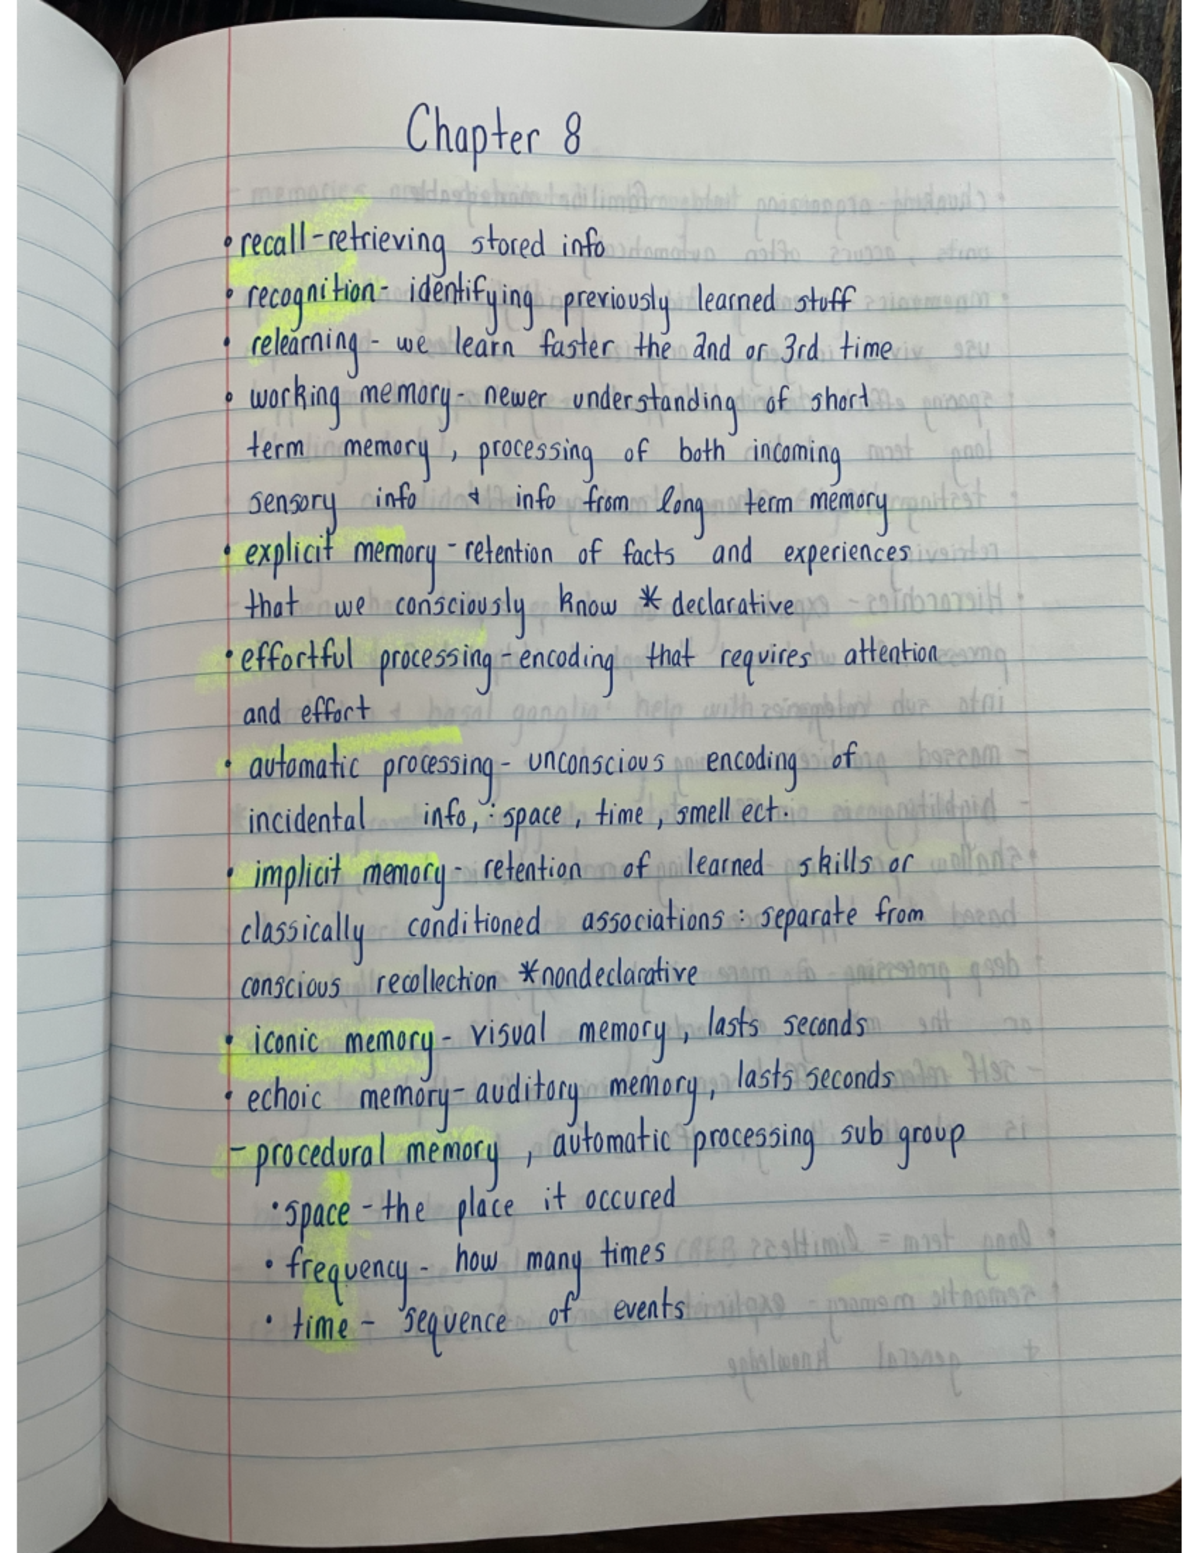 Chapter 8
• recall - retrieving stored info
• recognition - identifying previously learned stuff
• relearning - we learn faster the 2nd or 3rd time
• working memory - newer understanding of short
term memory, processing of both incoming
sensory info & info from long term memory
• explicit memory - retention of facts and experiences
that we consciously know * declarative
• effortful processing - encoding that requires attention
and effort
• automatic processing - unconscious encoding of
incidental info, : space, time, smell ect.
• implicit memory - retention of learned skills or
classically conditioned associations : separate from
conscious recollection *nondeclarative
• iconic memory - visual memory, lasts seconds
• echoic memory - auditory memory, lasts seconds
- procedural memory, automatic processing sub group
• space - the place it occured
• frequency - how many times
• time - sequence of events